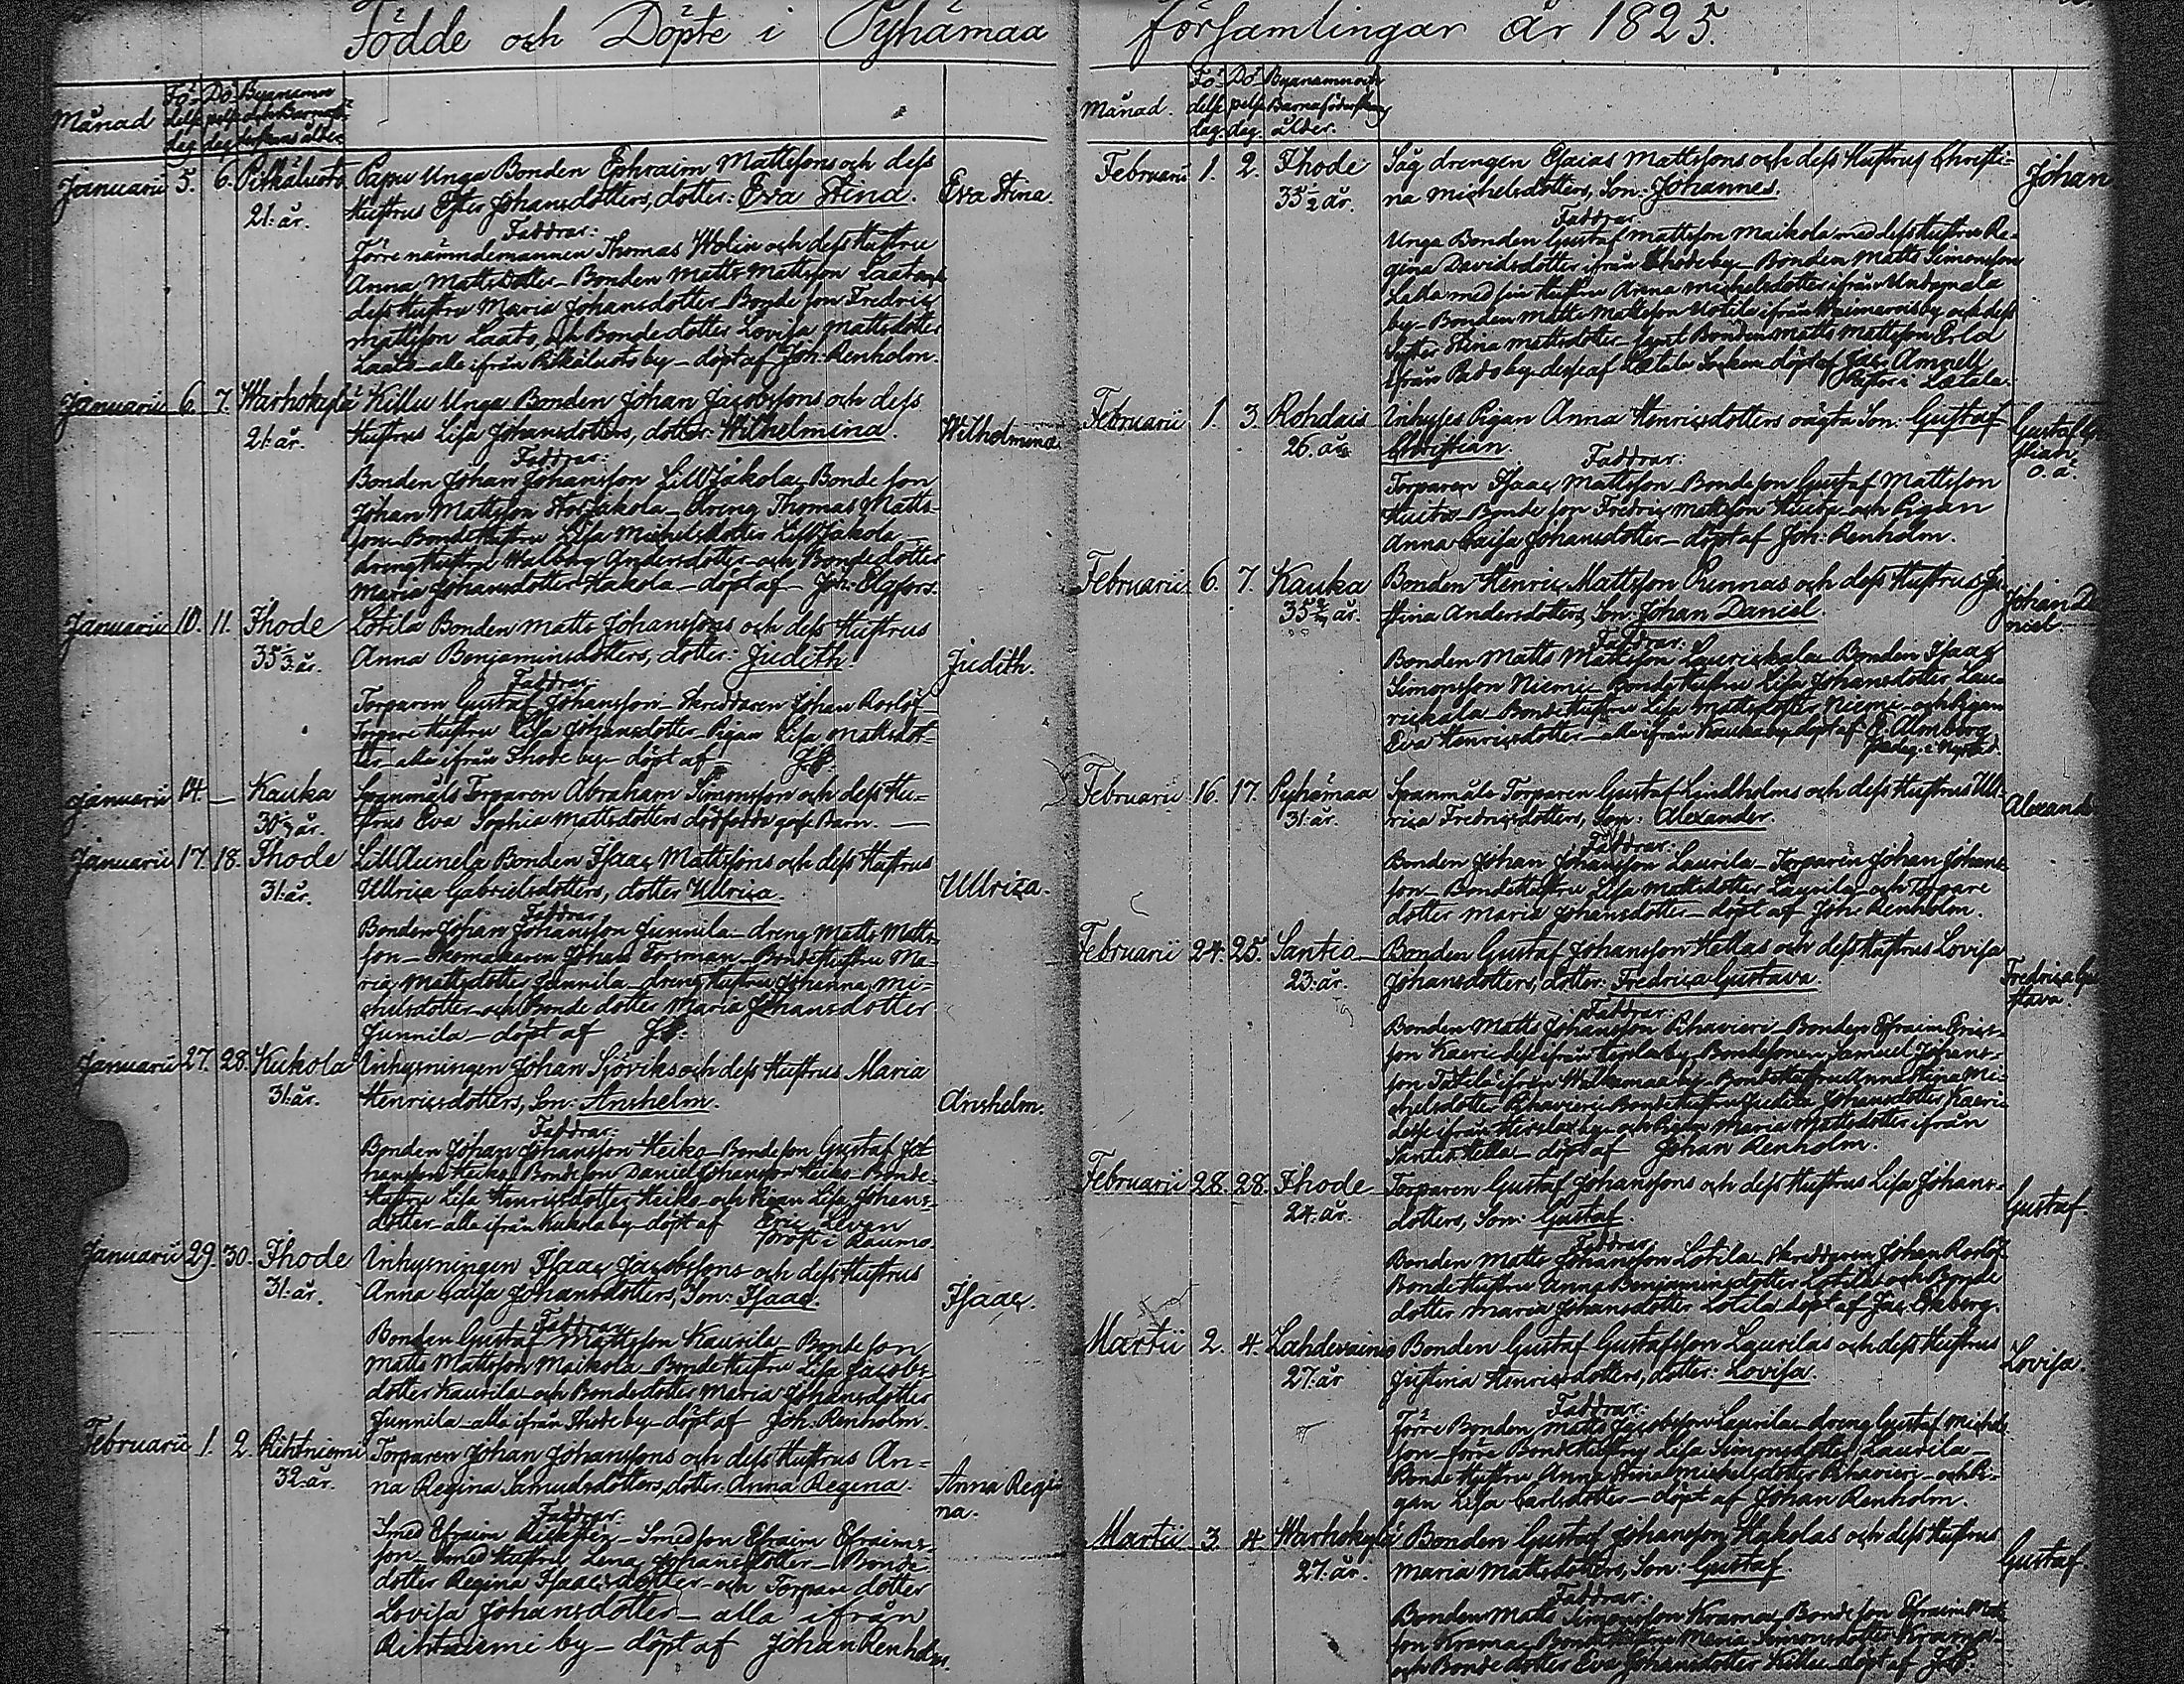 Födde och Döpte i Pyhämaa
Månad Fö-delse dag Dö-pelse dag Byanamn
Januarii 5. 6. Pitkäluoto Papu Unga Bonden Ephraim Mattssons och dess
21. år. Hustrus Ester Johansdotters, dotter: Eva Stina. Eva Stina.
Faddrar:
Förre nämndemannen Thomas Wolin och dess Hustru
Anna Mattsdotter - Bonden Matts Mattsson Laato och
dess Hustru Maria Johansdotter - Bonde son Fredric
Mattsson Laato, och Bondedotter Lovisa Mattsdotter
Laato - alla ifrån Pitkäluoto by - döpt af Joh. Renholm.
Januarii 6. 7. Warhokylä Killu Unga Bonden Johan Jacobssons och dess
21. år. Hustrus Lisa Johansdotters, dotter: Wilhelmina. Wilhelmina
Faddrar:
Bonden Johan Johansson LillJakola, Bonde son
Johan Mattsson StorJakola - dreng Thomas Matts-
son - BondeHustru Lisa Michelsdotter LillJakola -
drengHustru Walborg Andersdotter - och Bondedotter
Maria Johansdotter Hakola - döpt af Joh. Elgfors.
Januarii 10. 11. Ihode Lotila Bonden Matts Johanssons och dess Hustrus
35 1/3. år. Anna Benjaminsdotters, dotter: Judith. Judith.
Faddrar:
Torparen Gustaf Johansson - Skreddaren Johan Rorlöf -
Torpare Hustru Lisa Johansdotter - Pigan Lisa Mattsdot-
ter - alla ifrån Ihode by - döpt af
Januarii 14. — Kauka Torparen Abraham Simonsson och dess Hu-
30 år. strus Eva Sophia Mattsdotters dödfödde Barn. —
Januarii 17. 18. Ihode LillAunela Bonden Isaac Mattssons och dess Hustrus
31. år. Ullrica Gabrielsdotters, dotter Ullrica. Ullrica.
Faddrar
Bonden Johan Johansson Junnila - dreng Matts Matts-
son - Skomakaren Johan Forsman - BondeHustru Ma-
ria Mattsdotter Junnila - drengHustru Johanna Mi-
chelsdotter och Bonde dotter Maria Johansdotter
Junnila - döpt af
Januarii 27. 28. Kukola Inhysningen Johan Sjöviks och dess Hustrus Maria
31. år. Henricsdotters, Son: Anshelm. Anshelm.
Faddrar:
Bonden Johan Johansson Heiko - Bondeson Gustaf Jo-
hansson Heiko, Bondeson Daniel Johansson Heiko - Bonde-
Hustru Lisa Henricsdotter Heiko och Pigan Lisa Johans-
dotter - alla ifrån Kukola by - döpt af Eric Levan
Prost i Raumo.
Januarii 29. 30. Ihode Inhysningen Isaac Jacobssons och dess Hustrus
31. år. Anna Caisa Johansdotters, Son: Isaac. Isaac.
Faddrar
Bonden Gustaf Mattsson Kaurila - Bonde son
Matts Mattsson Maikola - BondeHustru Lisa Jacobs-
dotter Kaurila och Bondedotter Maria Johansdotter
Junnila - alla ifrån Ihode by - döpt af Joh. Renholm.
Februarii 1. 2. Rihtniemi Torparen Johan Johanssons och dess Hustrus An-
32. år. na Regina Samuelsdotters, dotter: Anna Regina. Anna Regi-
na.
Faddrar.
Smed Efraim - Smed son Efraim Efraims-
son - Smed Hustru Lena Johansdotter - Bonde-
dotter Regina Isaacsdotter - och Torpare dotter
Lovisa Johansdotter - alla ifrån
Rihtniemi by - döpt af Johan Renholm.
församlingar år 1825.
Månad. Fö-delse dag. Dö-pelse dag. Byanamn och Barnaföderskans ålder.
Februarii 1. 2. Ihode drengen Esaias Mattssons och dess Hustrus Christi-
35 1/2 år. na Michelsdotters, Son: Johannes. Johan
Faddrar.
Unga Bonden Gustaf Mattsson Maikola med dess Hustru Re-
gina Davidsdotter ifrån Ihode by - Bonden Matts Simonsson
Lalla med sin Hustru Anna Michelsdotter ifrån
by - Bonden Matts Mattsson Uotila ifrån och dess
Syster Stina Mattsdotter - samt Bonden Matts Mattsson Erla
ifrån by döpt af Jac. Amnell
Pastor i Letala.
Februarii 1. 3. Rohdais Inhyses Pigan Anna Henricsdotters oägta Son: Gustaf
26. år. Christian. Gustaf Chri-
stian
o. ä.
Faddrar:
Torparen Isaac Mattsson - Bondeson Gustaf Mattsson
Huita - Bonde son Fredric Mattsson Huita - och Pigan
Anna Caisa Johansdotter - döpt af Joh. Renholm.
Februarii 6. 7. Kauka Bonden Henric Mattsson Runnas och dess Hustrus Ju-
35 år. stina Andersdotters, Son: Johan Daniel. Johan Da-
niel.
Faddrar.
Bonden Matts Mattsson Laurickala - Bonden Isaac
Simonsson Niemi - BondeHustru Lisa Johansdotter Lau-
rickala - BondeHustru Lisa Mattsdotter Niemi - och Pigan
Eva Henricsdotter - alla ifrån Kauka by döpt af E. Almberg
Pædag. i Nystad.
Februarii 16. 17. Pyhämaa Spanmåls Torparen Gustaf Lindholms och dess Hustrus Ull-
31. år. rica Fredricsdotters, Son: Alexander. Alexande
Faddrar:
Bonden Johan Johansson Laurila - Torparen Johan Johans-
son - BondeHustru Lisa Mattsdotter Laurila - och Torpare
dotter Maria Johansdotter - döpt af Joh. Renholm.
Februarii 24. 25. Santio Bonden Gustaf Johansson Hellas och dess Hustrus Lovisa
23. år. Johansdotters, dotter: Fredrica Gustava. Fredrica Gu-
stava.
Faddrar:
Bonden Matts Johansson Rihavieri - Bonden Efraim Erics-
son ifrån by - Bondesonen Samuel Johans-
son ifrån by - BondeHustru Anna Stina Mi-
chelsdotter Rihavieri - BondeHustru Judith Johansdotter
ifrån by - och Pigan Maria Mattsdotter ifrån
Santio Hella - döpt af Johan Renholm.
Februarii 28. 28. Ihode Torparen Gustaf Johanssons och dess Hustrus Lisa Johans-
24. år. dotters, Son: Gustaf. Gustaf.
Faddrar:
Bonden Matts Johansson Lotila - Skreddaren Johan Rorlöf
BondeHustru Anna Benjaminsdotter Lotila och Bonde
dotter Maria Johansdotter Lotila döpt af Jac. Ekberg.
Martii 2. 4. Bonden Gustaf Gustafsson Laurilas och dess Hustrus
27. år Justina Henricsdotters, dotter: Lovisa. Lovisa.
Faddrar:
Förre Bonden Matts Jacobsson Laurila - dreng Gustaf Michels-
son - förre BondeHustru Lisa Simonsdotter Laurila -
Bonde Hustru Anna Stina Michelsdotter Rihavieri - och Pi-
gan Lisa Carlsdotter - döpt af Johan Renholm.
Martii 3. 4 Warhokylä Bonden Gustaf Johansson Hakolas och dess Hustrus
27. år. Maria Mattsdotters, Son: Gustaf. Gustaf
Faddrar:
Bonden Matts Simonsson Krama, Bonde son Efraim Matts-
son Krama, BondeHustru Maria Simonsdotter Krama -
och Bonde dotter Eva Johansdotter Killu - döpt af